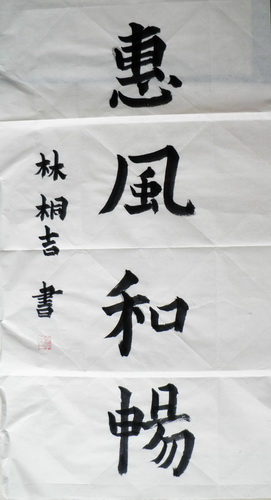 惠風和暢
林桐吉書